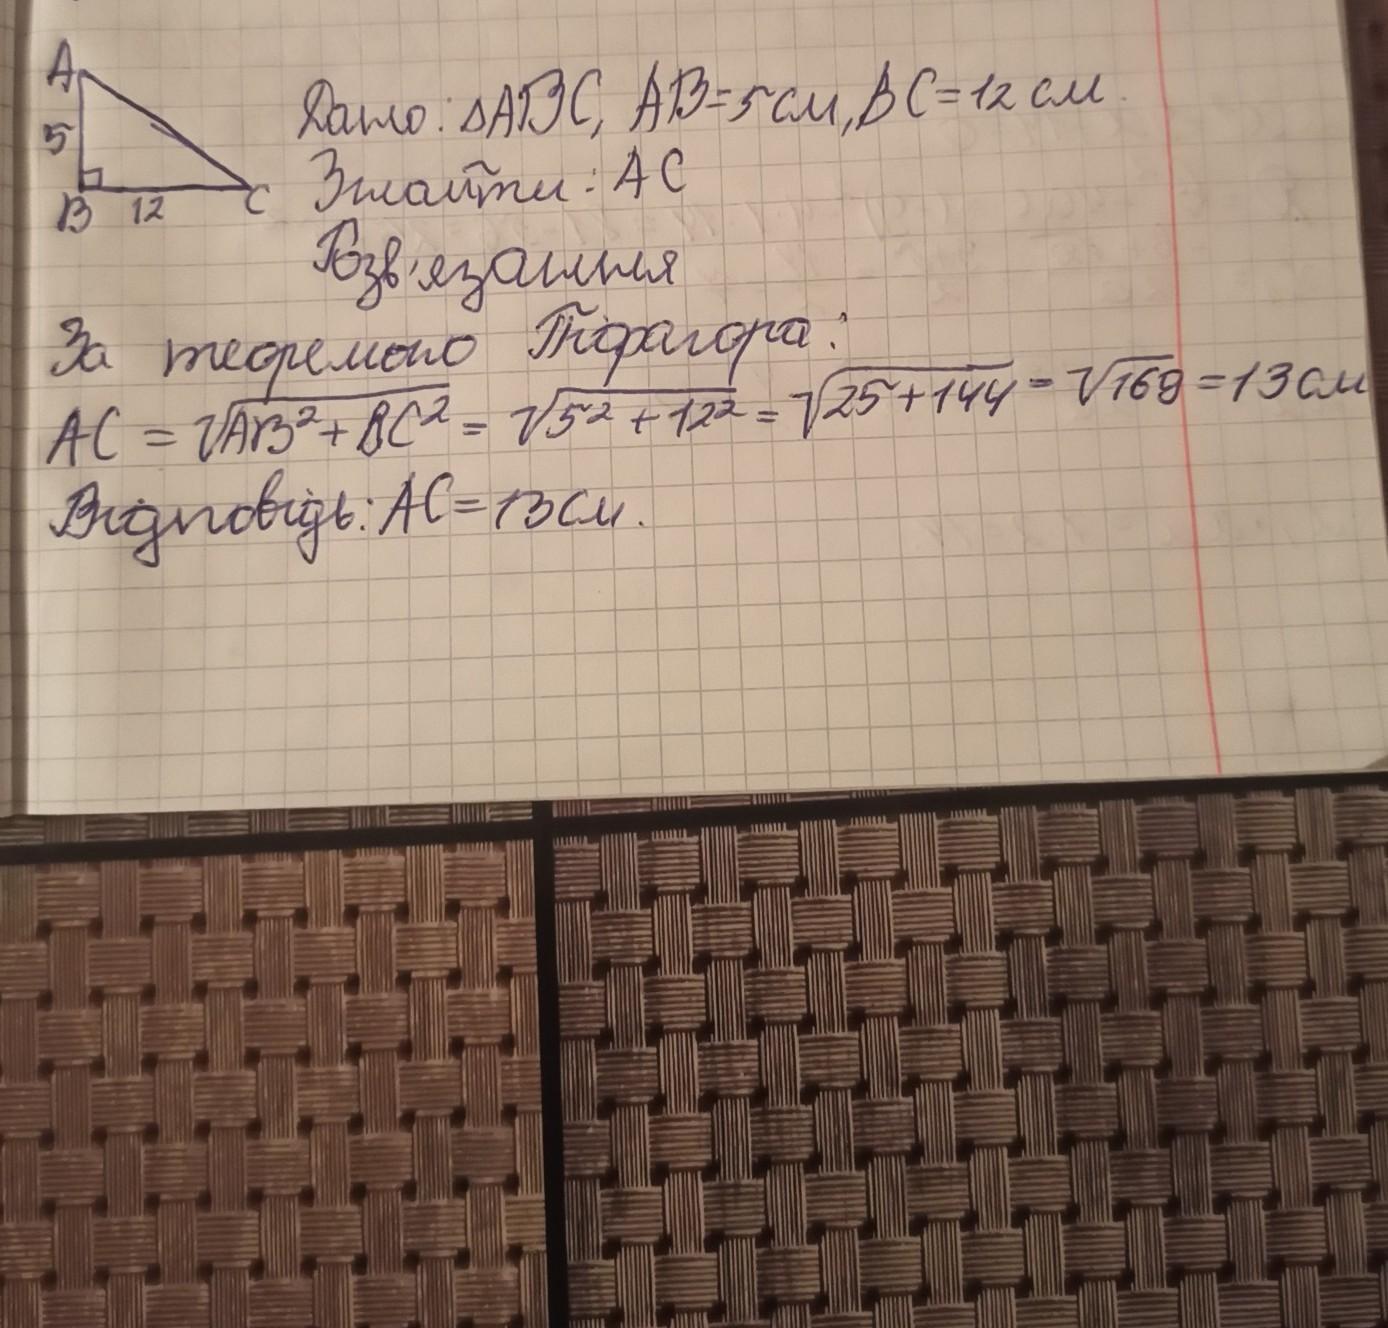 A
5
B 12 C
Дано: ΔABC, AB=5см, BC=12см.
Знайти: AC
Розв'язання
За теоремою Піфагора:
AC = √AB²+BC² = √5²+12² = √25+144 = √169 = 13см
Відповідь: AC=13см.